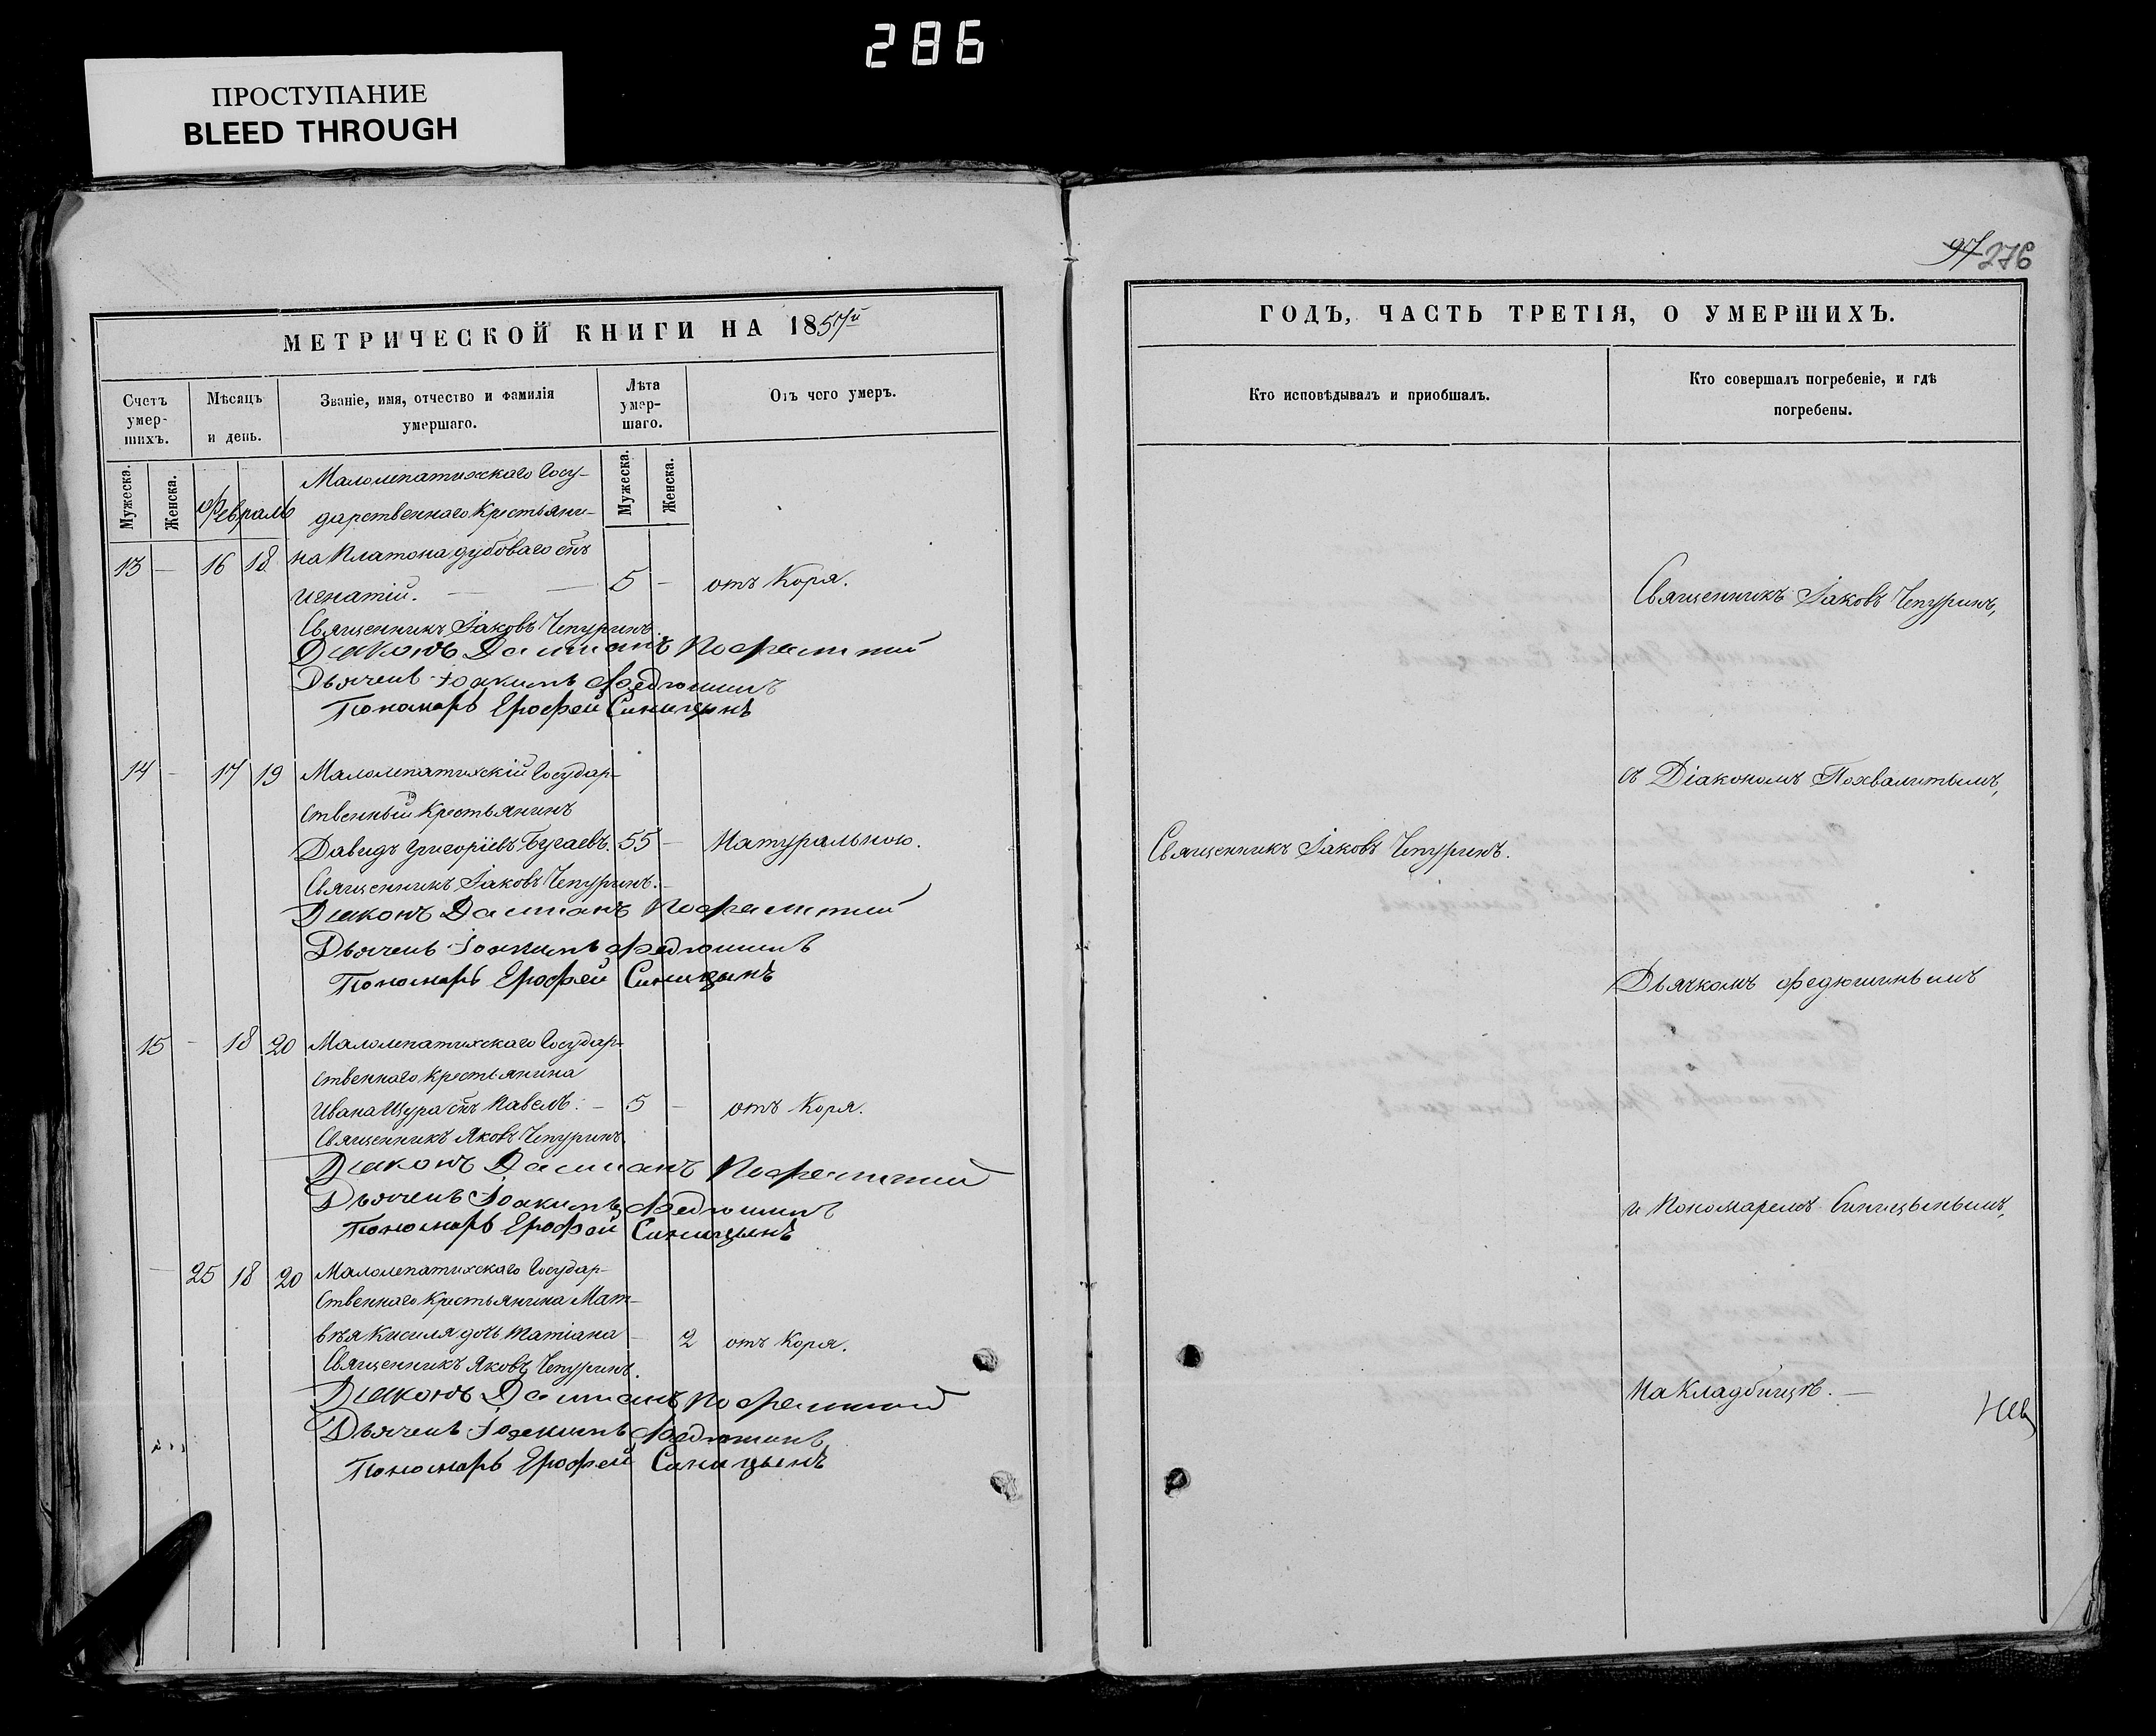 286
ПРОСТУПАНИЕ
BLEED THROUGH
97 276
МЕТРИЧЕСКОЙ КНИГИ НА 1857й
Счетъ умер-шихъ.
Мѣсяцъ и день.
Званіе, имя, отчество и фамилія умершаго.
Лѣта умер-шаго.
Отъ чего умеръ.
Мужеска.
Женска.
Мужеска.
Женска.
Февраль
Малолепатихскаго Госу-
дарственнаго Крестьяни-
13 — 16 18 на Платона Дубоваго сынъ
Игнатій. — — 5 — отъ Коря.
Священникъ Іаковъ Чепуринъ.
Діаконъ Даміанъ
Дьячекъ Іоакимъ Федюшинъ
Пономарь Ерофей Синицынъ
14 — 17 19 Малолепатихскій Государ-
ственный Крестьянинъ
Давидъ Григоріевъ Бугаевъ. 55 — Натуральною.
Священникъ Іаковъ Чепуринъ.
Діаконъ Даміанъ
Дьячекъ Іоакимъ Федюшинъ
Пономарь Ерофей Синицынъ
15 — 18 20 Малолепатихскаго Государ-
ственнаго Крестьянина
Ивана Щура сынъ Павелъ. — 5 — отъ Коря.
Священникъ Яковъ Чепуринъ.
Діаконъ Даміанъ
Дьячекъ Іоакимъ Федюшинъ
Пономарь Ерофей Синицынъ
— 25 18 20 Малолепатихскаго Государ-
ственнаго Крестьянина Мат-
вѣя Кисиля дочь Татіана — 2 отъ Коря.
Священникъ Яковъ Чепуринъ.
Діаконъ Даміанъ
Дьячекъ Іоакимъ Федюшинъ
Пономарь Ерофей Синицынъ
ГОДЪ, ЧАСТЬ ТРЕТІЯ, О УМЕРШИХЪ.
Кто исповѣдывалъ и приобшалъ.
Кто совершалъ погребеніе, и гдѣ
погребены.
Священникъ Іаковъ Чепуринъ,
съ Діакономъ Похвалитымъ,
Священникъ Іаковъ Чепуринъ.
Дьячкомъ Федюшинымъ
и Пономаремъ Синицынымъ,
На Кладбищѣ. —